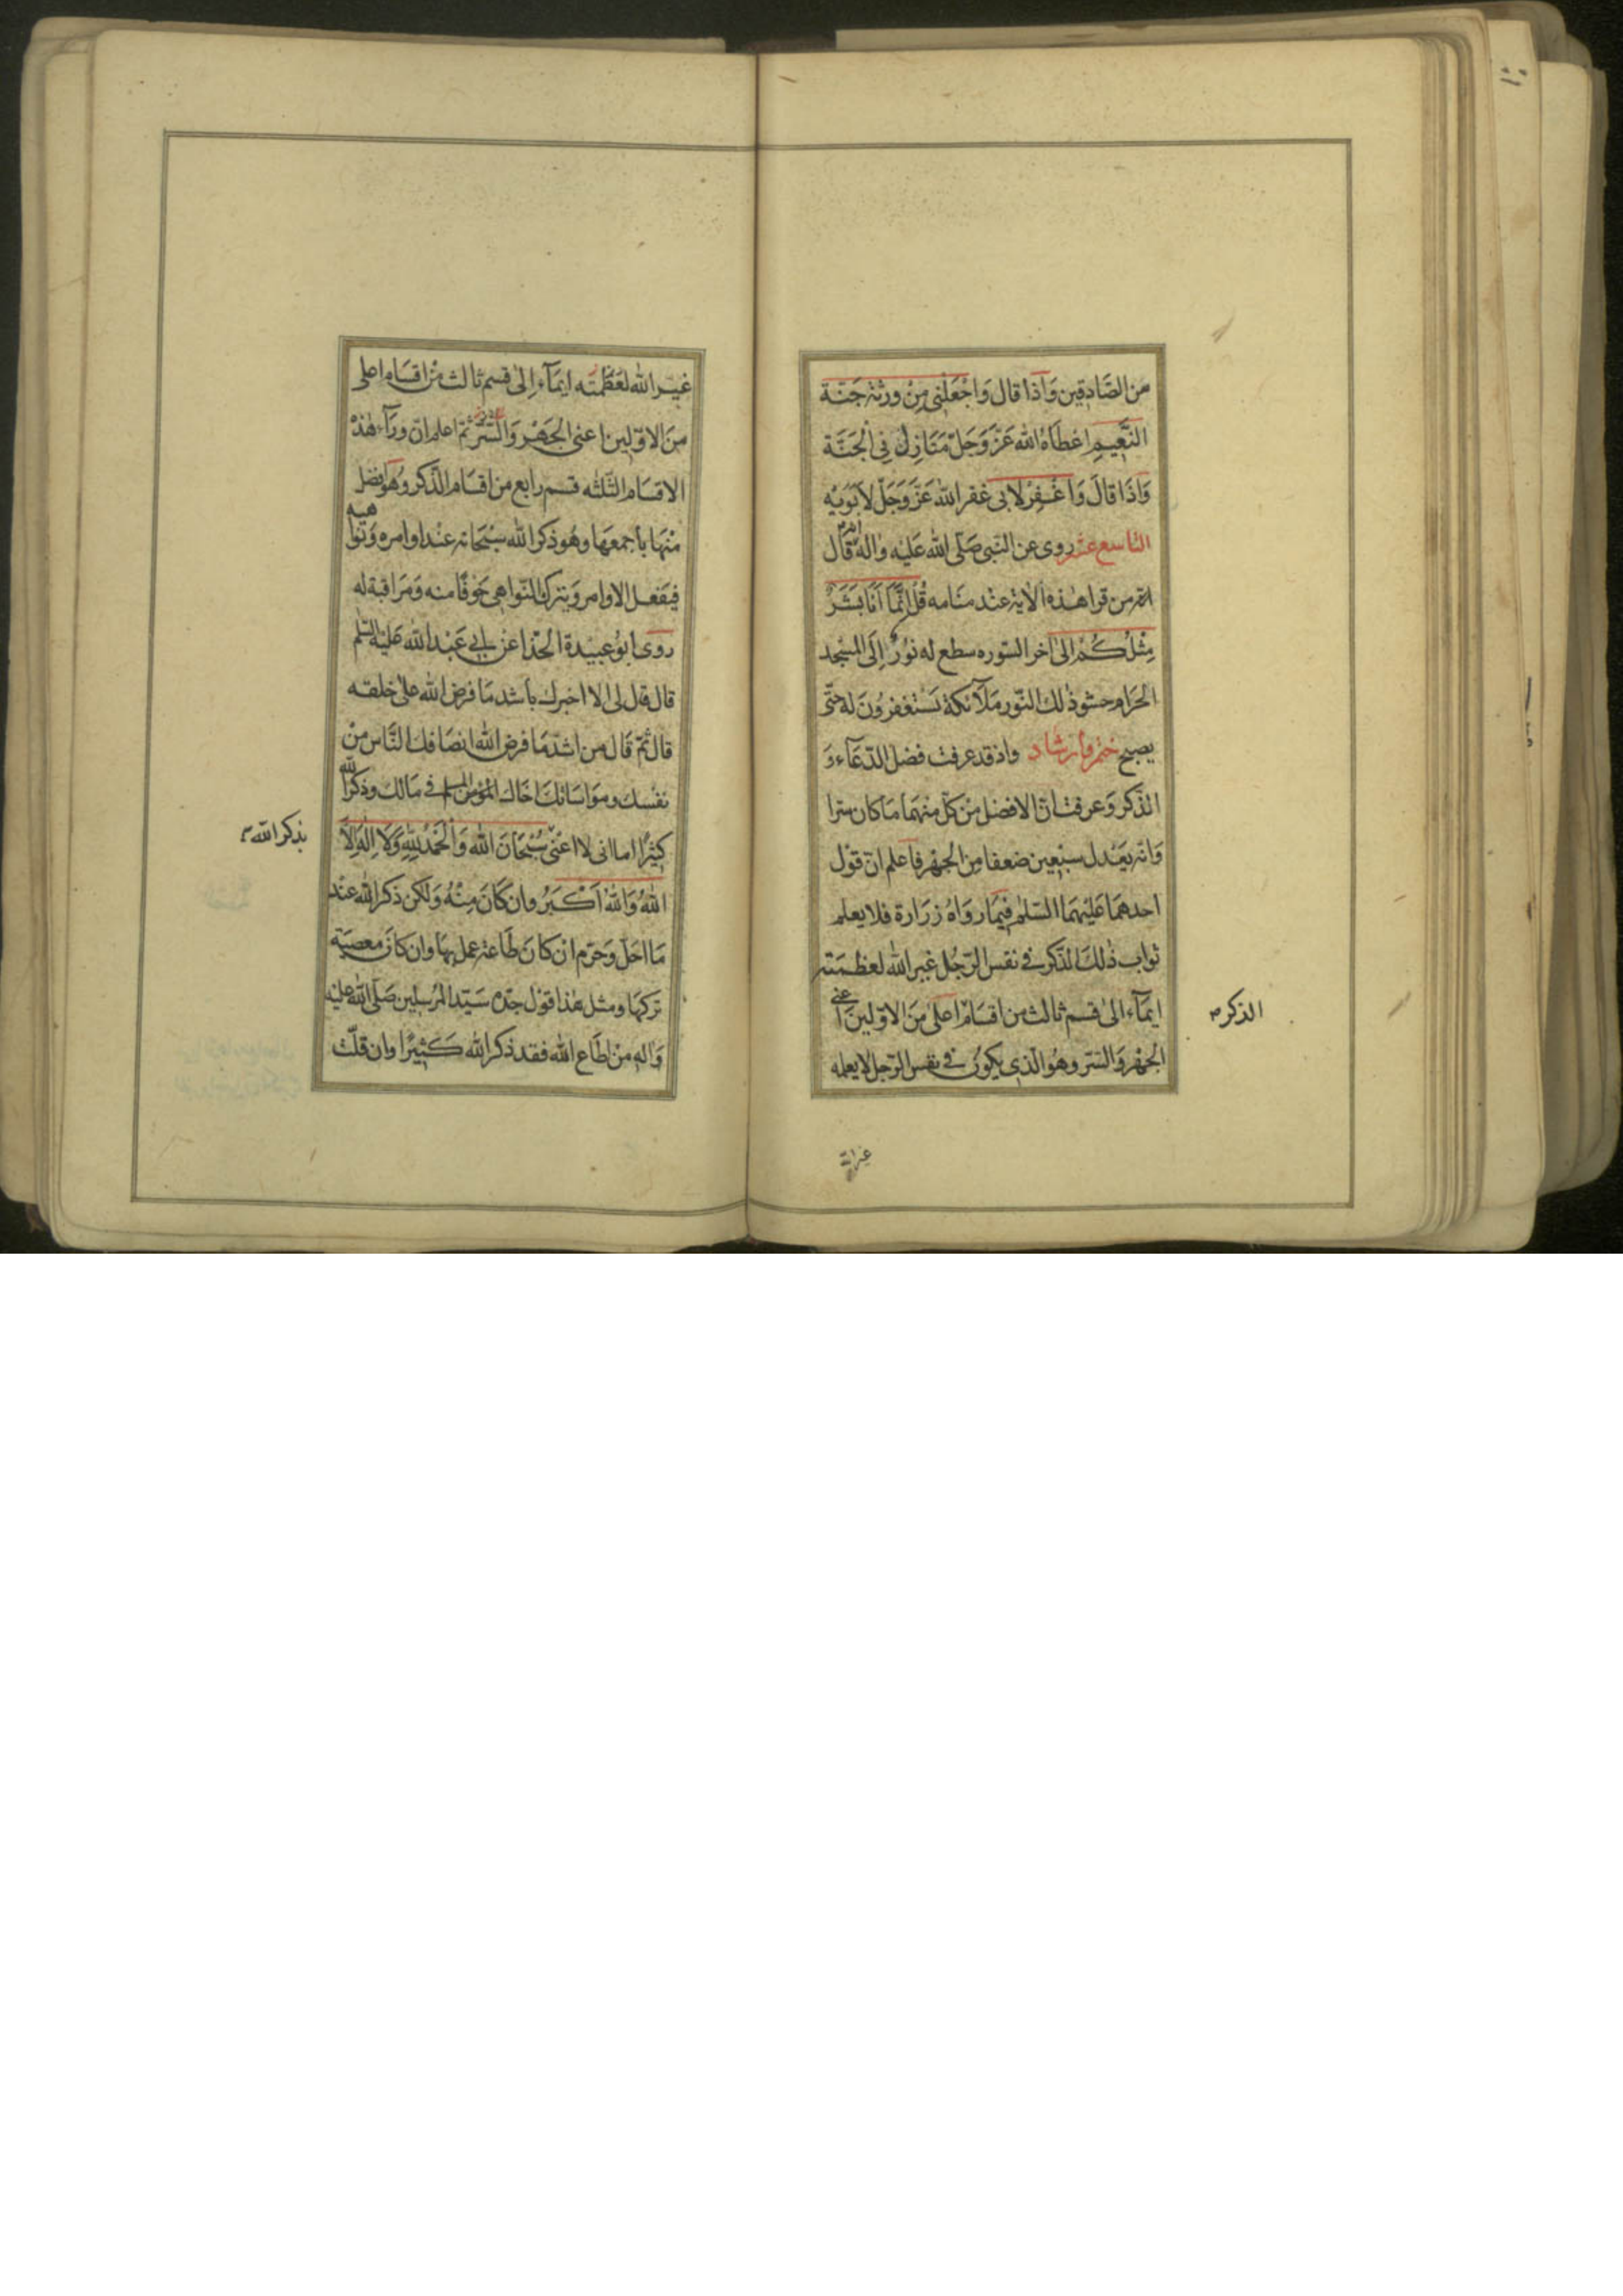 من الصَّادِقين وَاذا قال وَاجْعَلْنى مِنْ ورثة جَنّة
النَّعيمِ اعْطَاهُ الله عَزّ وَجَلّ مَنَازِلَ فِى الْجَنَّة
وَاذَا قالَ وَاغْفِرْ لابى غفر الله عَزّ وَجَلّ لابَوَيْه
التاسع عشر روى عن النبى صَلّى الله عَليْه واله انه قال
من قرا هٰذه الاية عنْد منَامه قُلْ اِنَّمَا اَنَا بَشَرٌ
مِثْلُكُمْ الىٰ اخر السّوره سطع له نُورٌ اِلَى المسْجد
الحَرَام حشو ذٰلك النّور مَلآئكة يَسْتغفرُونَ له حتّى
يصبح ختم وارشاد واذ قد عرفت فضل الدّعَآء وَ
الذّكر وَعرفت انّ الافضل منْ كلّ منهمَا مَا كان سّرا
وَانه يعْدل سبْعِين ضعفا مِن الجهْر فاعلم انّ قوْل
احدهمَا عَليْهمَا السّلٰم فيمَا روَاهُ زرَارة فلا يعلم
ثواب ذٰلكَ الذّكر فى نفس الرّجُل غير الله لعظمَته
ايمَآء الىٰ قسم ثالث من اقسَام اعلىٰ مَن الاوّلينَ اعنى
الجهْر وَالسّر وهُو الّذى يكونُ فى نفس الرّجل لا يعلمه
الذكر م
غير الله
غيْر الله لعَظمتِه ايمَآء اِلىٰ قسم ثالث منْ اقسَام اعلى
منَ الاوّلين اعنى الجَهْر وَالسّر ثمّ اعلم انّ ورآء هٰذهْ
الاقسَام الثّلثه قسم رابع من اقسَام الذّكر وهُو افضل
منْهَا باجمعهَا وهُو ذكر الله سبْحَانه عنْد اوامره وَنواهيه
فيَفعل الاوامر وَيترك النّواهى خَوفًا منه وَمرَاقبة له
روى ابُو عبيْدة الحَذا عنْ ابى عَبْد الله عَليْه السّلم
قال قال لى الا اخبرك باشد مَا فرض الله علىٰ خلقه
قال ثمّ قَال من اشدّ مَا فرض الله انصَافك النَّاس منْ
نفْسك وموَاسَاتك اخَاك المؤمن المسلم فى مَالك وذكر الله
كثيرًا اما انى لا اعْنى سُبْحَانَ الله وَالْحَمْدُ لِلّٰهِ وَلَا اِلٰهَ اِلَّا
اللهُ وَاللهُ اَكْبَرُ وان كَانَ مِنْهُ وَلكن ذكر الله عنْد
مَا احَلّ وَحَرّم انْ كَانَ طَاعة عمل بهَا وان كانَ معصيَة
تركهَا ومثل هٰذا قوْل جدّه سَيّد المرْسلين صَلّى الله عليْه
وَاله منْ اطَاع الله فقد ذكر الله كَثيرًا وان قلّت
بذكر الله م